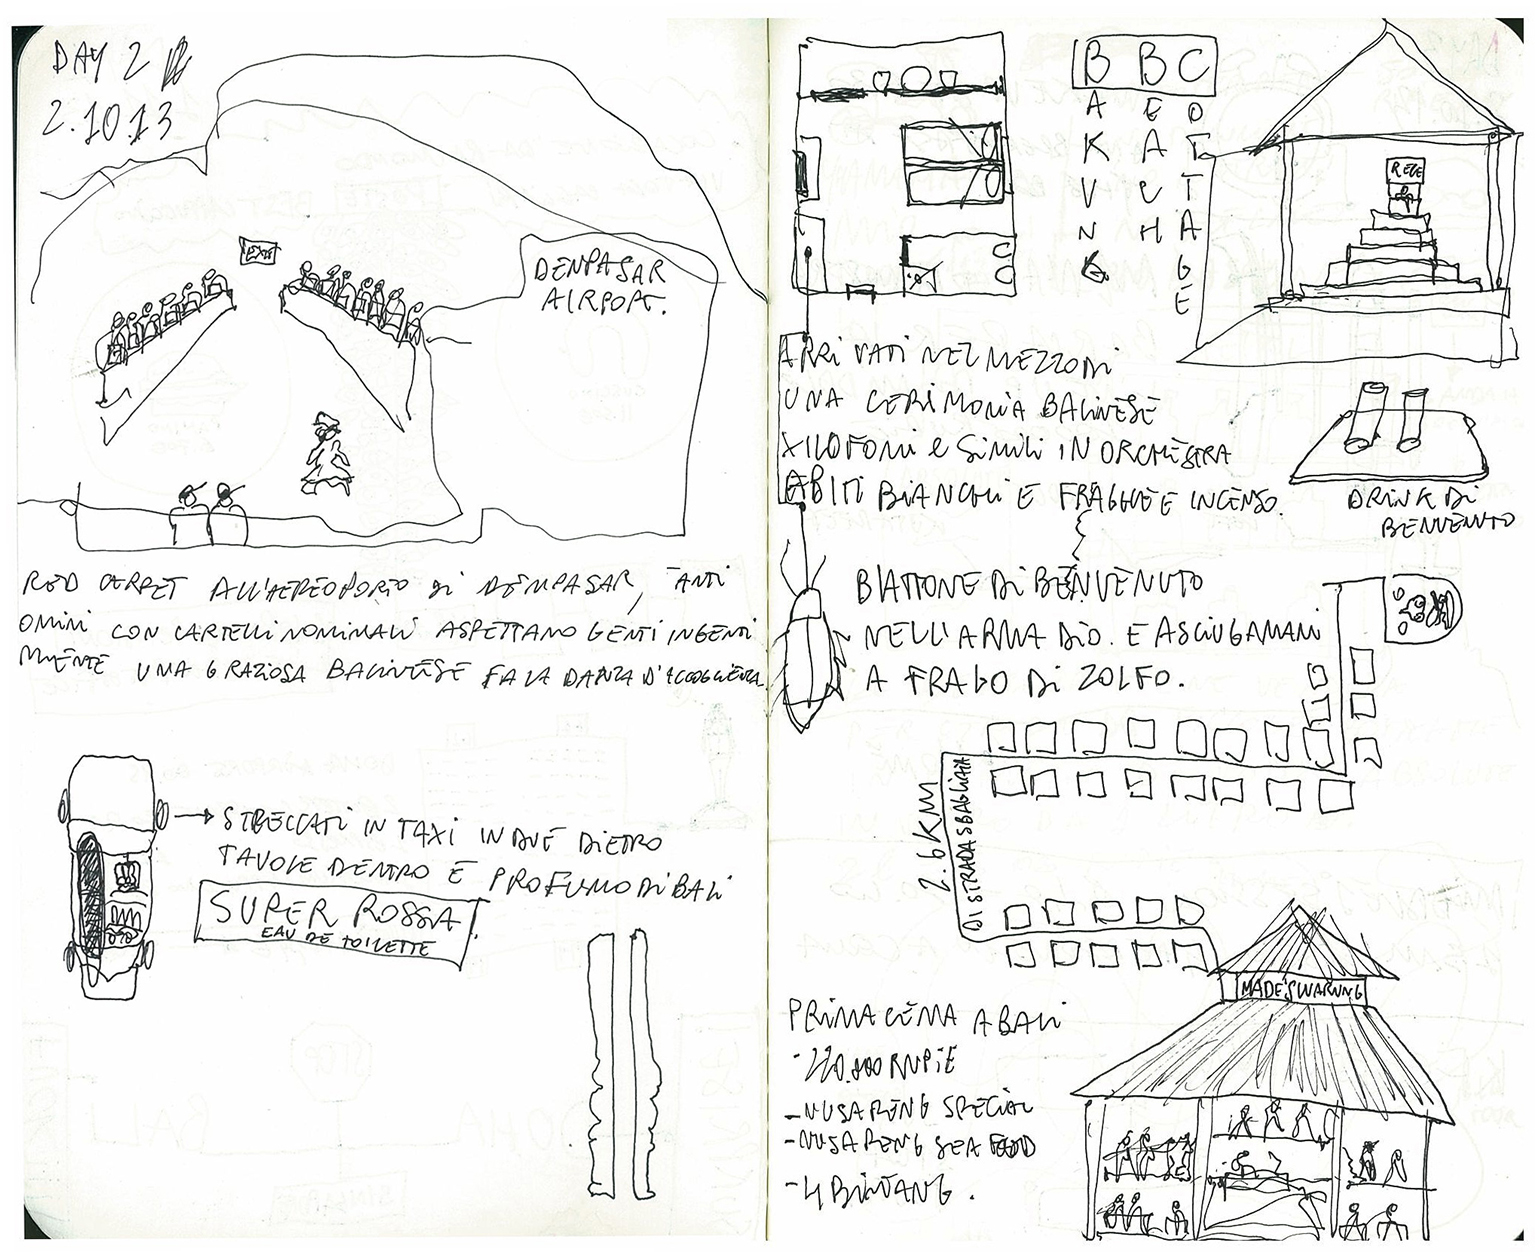 DAY 2
2.10.13
EXIT
DENPASAR
AIRPORT.
RED CERPET ALL'AEREOPORTO DI DENPASAR, TANTI
OMINI CON CARTELLI NOMINALI ASPETTANO GENTI INGENTI
MUENTE UNA GRAZIOSA BALINESE FA LA DANZA D'ACCOGLIENZA
STECCATI IN TAXI IN DUE DIETRO
TAVOLE DENTRO E PROFUMO DI BALI
SUPER ROSSA!
EAU DE TOILETTE
BAKUNG
BEACH
COTTAGE
RECE
ARRIVATI NEL MEZZO DI
UNA CERIMONIA BALINESE
XILOFONI E SIMILI IN ORCHESTRA
ABITI BIANCHI E FRAGGUE INCENSO.
DRINK DI
BENVENUTO
BLATTONE DI BENVENUTO
NELL'ARMADIO. E ASCIUGAMANI
A FRAGO DI ZOLFO.
2.6 KM
DI STRADA SBAGLIATA
MADE'S WARUNG
PRIMA CENA A BALI
- 220.000 RUPIE
- NUSARENG SPECIAL
- NUSARENG SEA FOOD
- 4 BINTANG.